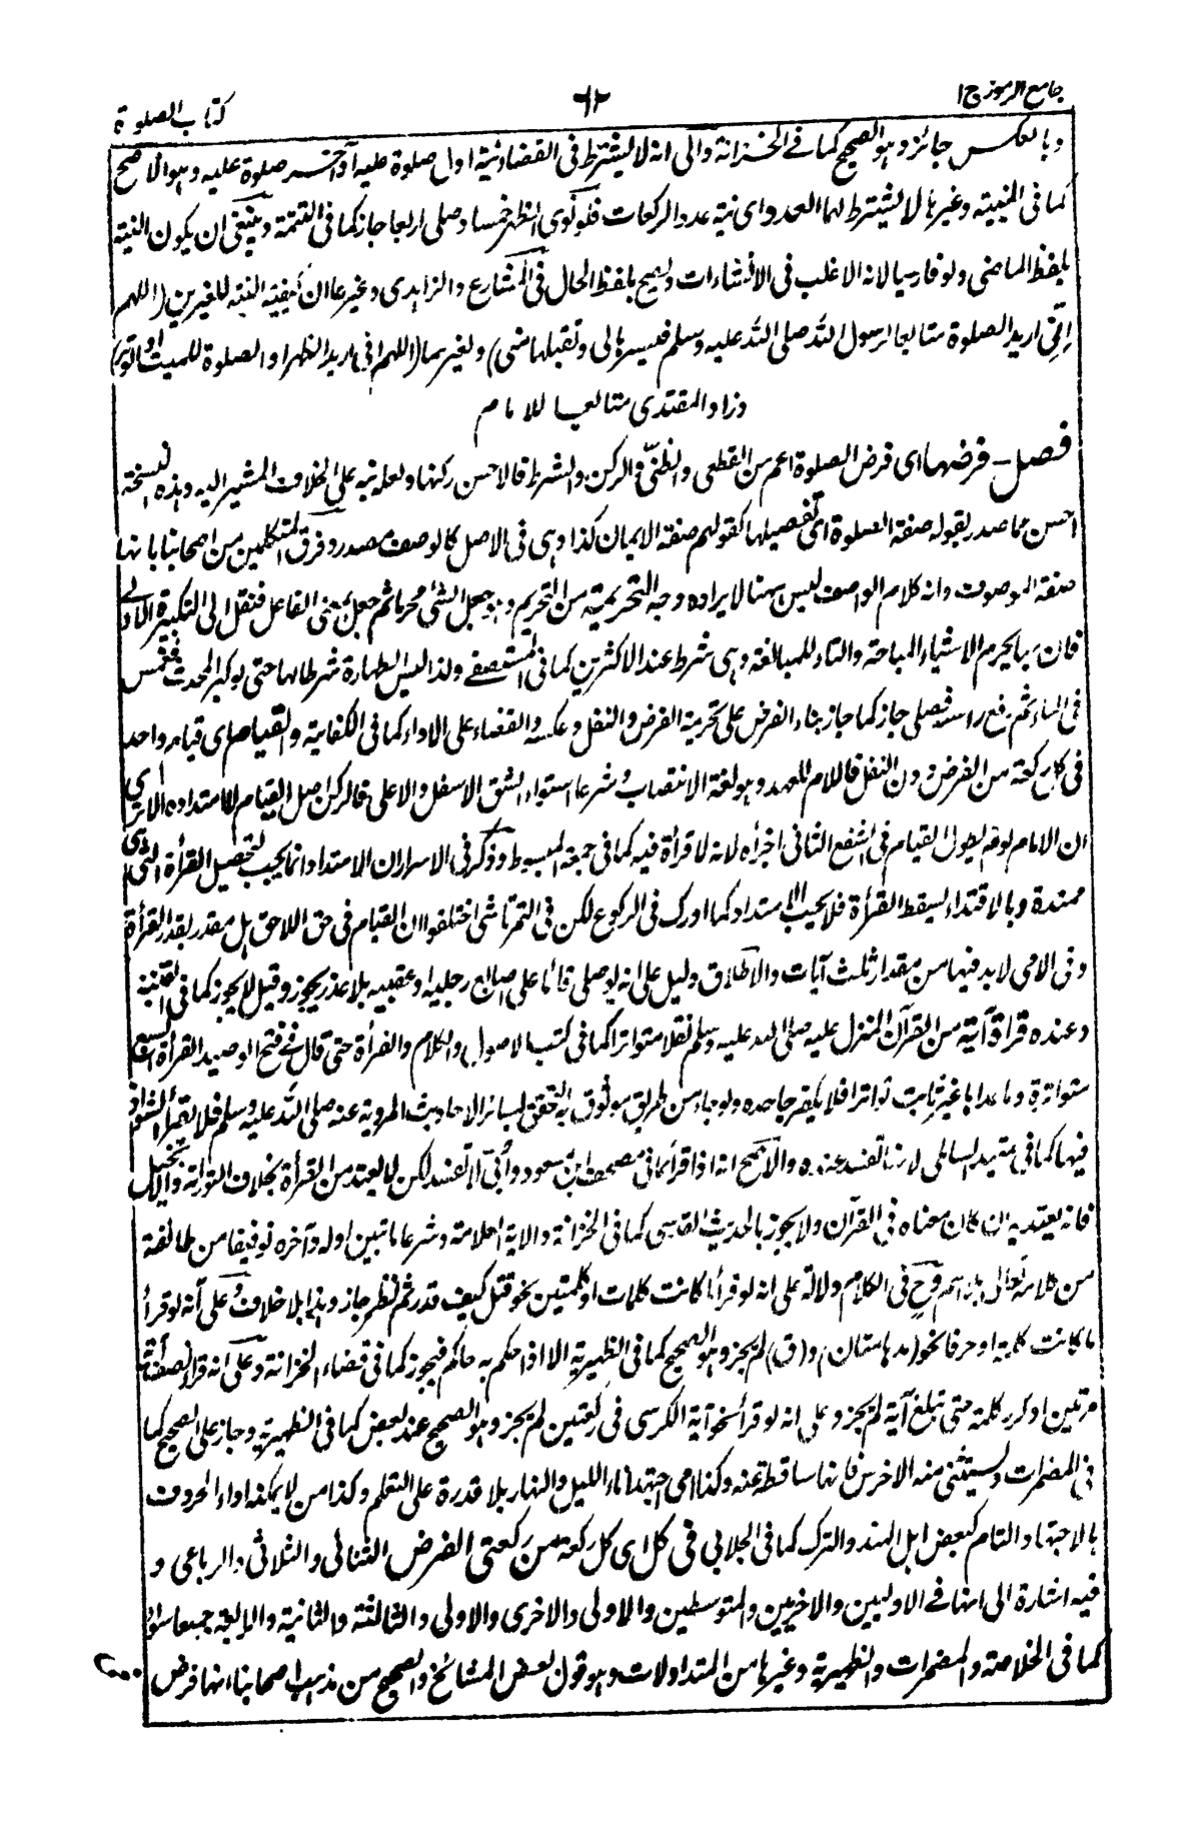 جامع الرموز ج١
٦٢
كتاب الصلوة
وبالعكس جائز وهو الصحيح كما في الخزانة والى انه لا يشترط في القضاء نية اول صلوة عليه او آخر صلوة عليه وهو الاصح
كما في المنية وغيرها لا يشترط لها العدد اى نية عدد الركعات فلو نوى الظهر خمسا وصلى اربعا جاز كما في التتمة وينبغي ان يكون النية
بلفظ الماضى ولو فارسيا لانه الاغلب في الانشاءات ويصح بلفظ الحال في المشارع والزاهدى وغيرهما ان كيفية النية للغيرين (اللهم
انى اريد الصلوة متابعا لرسول الله صلى الله عليه وسلم فيسرها لى وتقبلها منى) ولغيرهما (اللهم انى اريد الظهر او الصلوة للميت او الوتر)
وزاد المقتدى متابعا للامام
فصل - فرضها اى فرض الصلوة اعم من القطعى والظنى والركن والشرط فالاحسن ركنها ولعله نبه على الخلاف المشير اليه وهذه النسخة
احسن مما صدر بقوله صفة الصلوة اى تفصيلها كقولهم صفة الايمان كذا وهى في الاصل كالوصف مصدر وفرق المتكلمين من اصحابنا بانها
صفة الموصوف وانه كلام الواصف ليس ههنا لايراده وجه التحريمة من التحريم وهو جعل الشئ محرما ثم جعل بمعنى الفاعل فنقل الى التكبيرة الاولى
فان بها يحرم الاشياء المباحة والتاء للمبالغة وهى شرط عند الاكثرين كما في المستصفى ولذا ليس الطهارة شرطا لها حتى لو كبر المحدث فغمس
في الماء ثم رفع راسه فصلى جاز كما جاز بناء الفرض على تحريمة الفرض والنفل وعكسه والقضاء على الاداء كما في الكفاية والقيام اى قيام واحد
في كل ركعة من الفرض دون النفل فاللام للعهد وهو لغة الانتصاب وشرعا استواء الشق الاسفل والاعلى فالركن اصل القيام لا امتداده الا ترى
ان الامام لو لم يطول القيام في الشفع الثانى اجزأه لانه لا قرأة فيه كما في جمعة المبسوط وذكر في الاسرار ان الامتداد انما يجب لتحصيل القرأة التى هى
ممتدة وبالاقتداء يسقط القرأة فلا يجب الامتداد كما ادرك في الركوع لكن في التمرتاشى اختلفوا ان القيام في حق اللاحق هل مقدر بقدر القرأة
وفى الامى لا بد فيها من مقدار ثلث آيات والاطلاق دليل على انه لو صلى قائما على اصابع رجليه او عقبيه بلا عذر يجوز وقيل لا يجوز كما في القنية
وعنده قراة آية من القرآن المنزل عليه صلى الله عليه وسلم نقلا متواترا كما في كتب الاصول والكلام والقرأة حتى قال في فتح الوصيد القرأة السبع
متواترة وما عداها غير ثابت تواترا فلا يكفر جاحده ولو جاء من طريق موثوق به التحقق بسائر الاحاديث المروية عنه صلى الله عليه وسلم فلا يقرأ الشواذ
فيها كما في لانها تفسد عنده والاصح انه اذا قرأ بما في مصحف ابن مسعود وأبى لا تفسد لكن لا يعتد من القرأة بخلاف التوراة والانجيل
فانه يعتد به ان كان معناه في القرآن ولا يجوز بالحديث القدسى كما في الخزانة والآية العلامة وشرعا ما تبين اوله وآخره توقيفا من طائفة
من كلامه تعالى بلا اسم وفى الكلام دلالة على انه لو قرأ ما كانت كلمات او كلمتين نحو قتل كيف قدر ثم نظر جاز وهذا بلا خلاف وعلى انه لو قرأ
ما كانت كلمة او حرفا نحو (مدهامتان) و(ق) لم يجز وهو الصحيح كما في الظهيرية الا اذا حكم به حاكم فيجوز كما في قضاء الخزانة وعلى انه قرأ نصف آية
مرتين او كرر كلمة حتى تبلغ آية لم يجز وعلى انه لو قرأ نحو آية الكرسى في ركعتين لم يجز وهو الصحيح عند بعض كما في الظهيرية وجاز على الصحيح كما
في المضمرات ويستثنى منه الاخرس فانها ساقطة عنه وكذا امى اجتهد اناء الليل والنهار بلا قدرة على التعلم وكذا من لا يمكنه اداء الحروف
بالاجتهاد التام كبعض اهل الهند والترك كما في الجلابى في كل اى كل ركعة من ركعتى الفرض الثنائى والثلاثى والرباعى و
فيه اشارة الى انها في الاوليين والاخريين والمتوسطين والاولى والاخرى والاولى والثالثة والثانية والرابعة جميعا سواء
كما في الخلاصة والمضمرات والظهيرية وغيرها من المتداولات وهو قول بعض المشائخ والصحيح من مذهب اصحابنا انها فرض